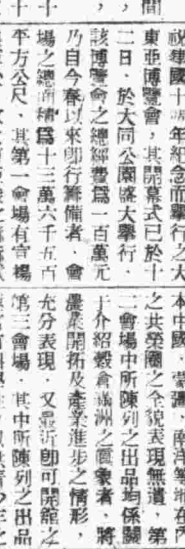 間
祝建國十周年紀念而舉行之大
東亞博覽會，其開幕式已於十
二日，於大同公園盛大舉行，
該博覽會之總經費爲一百萬元
乃自今春以來即行籌備者，會
場之總面積爲十三萬六千五百
平方公尺，其第一會場有官場
十
本中國，蒙疆，南洋等地在內
之共榮圈之全貌表現無遺，第
二會場中所陳列之出品均係關
于介紹穀倉滿洲之眞象者，將
農業開拓及產業進步之情形，
充分表現，又最近即可開館之
第三會場，其中所陳列之出品